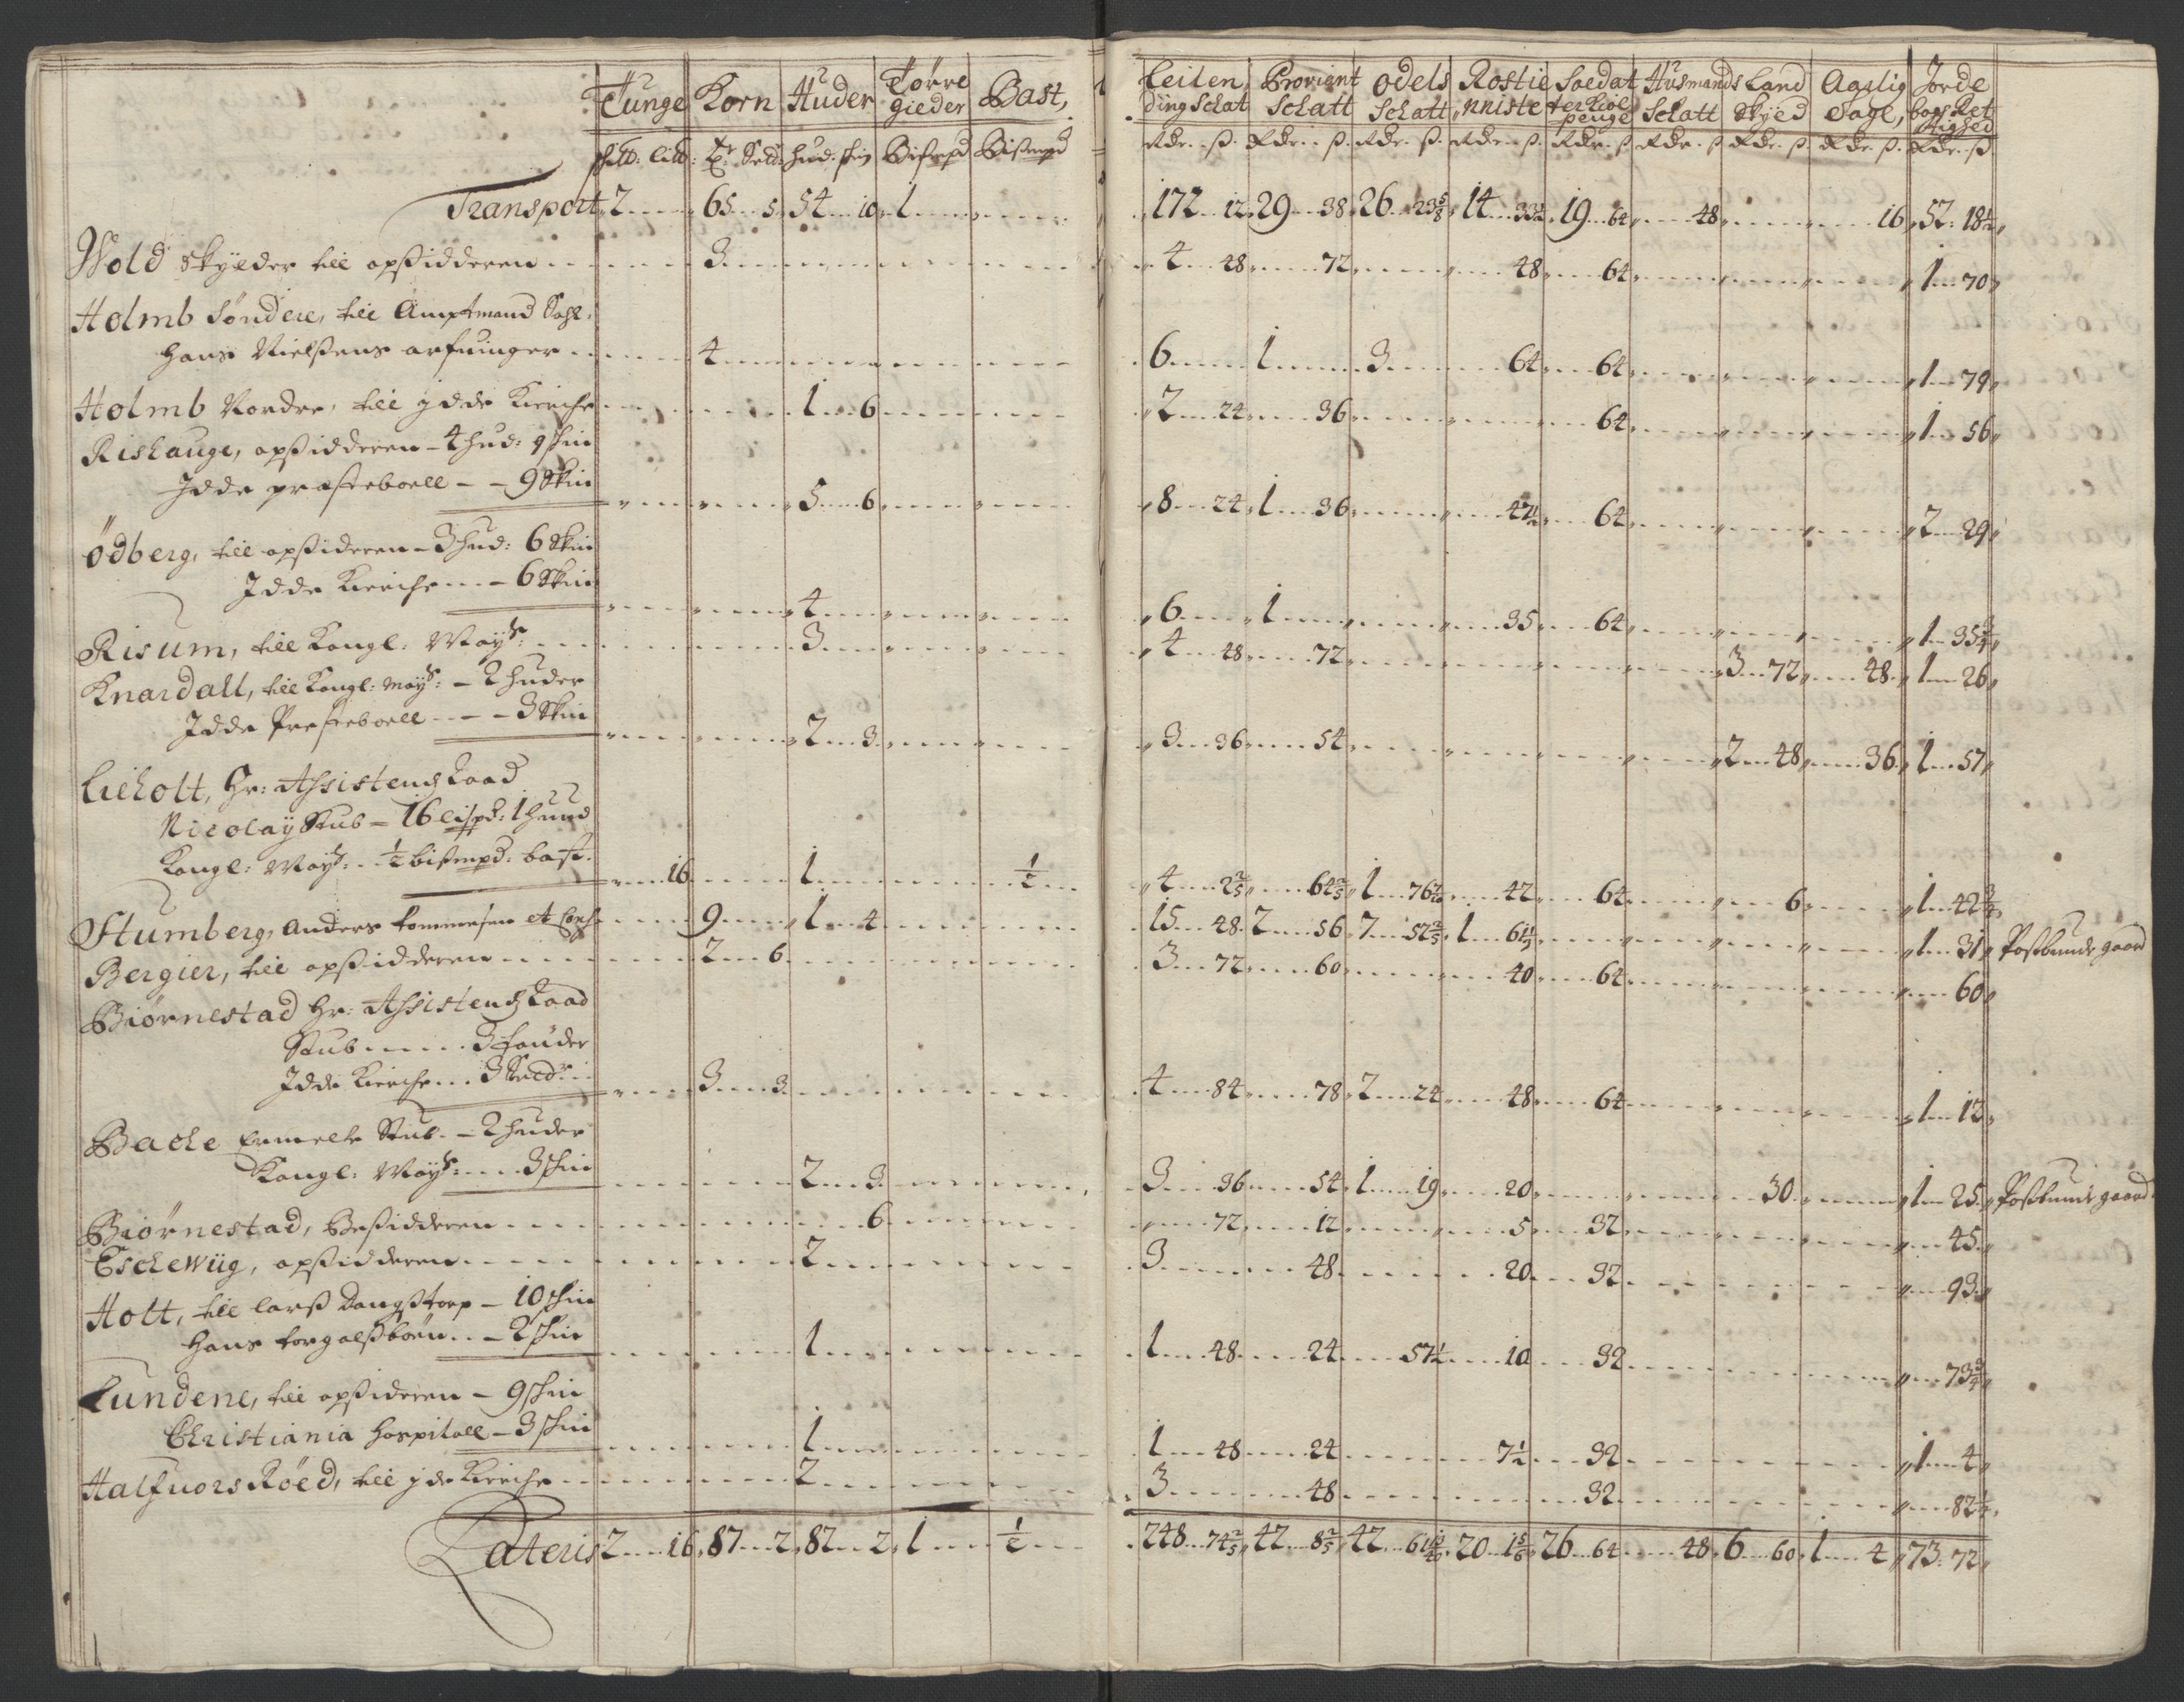 Tunge Korn Huder Tørre Gieder Bast,
Leilending Schat Proviant Schatt Odels Schatt, Rostieniste Soldat penge Husmands Schatt Land Skyld Agelig Sagl, Jorde bogs Rettighed
Transport 2 65 5 54 10 1 172 12 29 38 26 23 5/8 14 33 1/2 19 64 48 16 52 18 1/2
Wold skylder till opsidderen 3 4 48 72 48 64 1 70
Holmb Søndere, till Amptmand Sahl.
Hans Nielsens arfuinger 4 6 1 3 64 64 1 79
Holmb Nordre, till jdde Kirche 1 6 2 24 36 64 1 56
Rishauge, opsidderen 4 hud: 9 skin
Idde præsteboell 9 Skin 5 6 8 24 1 36 47 1/2 64 2 29
Ødberg, till opsideren 3 hud: 6 Skin
Idde Kirche 6 Skin 4 6 1 35 64 1 35 3/4
Risum, till Kongl: Mayt: 3 4 48 72 3 72 48 1 26
Knardall, till Kongl: Mayt: 2 huder
Idde Presteboell 3 Skin 2 3 3 36 54 2 48 36 1 57
Lieholt, Hr: Assistentz Raad
Nicolay Stub 16 lispd: 1 hud
Kongl: Mayt: 1/2 bismpd: bast. 16 1 1/2 4 2 2/5 64 2/5 1 76 42 64 6 1 42 3/4
Stumberg, Anders Tommesen et Cons. 9 1 4 15 48 2 56 7 52 2/5 1 6 1/3 1 31 Postbunde gaard
Bergier, till opsidderen 2 6 3 72 60 40 64 60
Biørnestad Hr: Assistentz Raad
Stub 3 Huder
Idde Kirche 3 Setd: 3 3 4 84 78 2 24 48 64 1 12
Bache Ermelte Stub 2 huder
Kongl: Mayt: 3 skin 2 3 3 36 54 1 19 20 30 1 25 Postbunde gaard
Biørnestad, Besidderen 6 72 12 5 32 45
Eschewiig, opsidderen 2 3 48 20 32 93
Holt, till Larss 10 skin
Hans 2 skin 1 1 48 24 57 1/2 10 32 73 3/4
Lundene, till opsideren 9 skin
Christiania Hospitall 3 skin 1 1 48 24 7 1/2 32 1 4
Halfuors Røed, till jde Kirche 2 3 48 32 82 1/2
Lateris 2 16 87 2 82 2 1 1/2 248 74 2/5 42 8 2/5 42 61 20 1 5/6 26 64 48 6 60 1 4 73 72